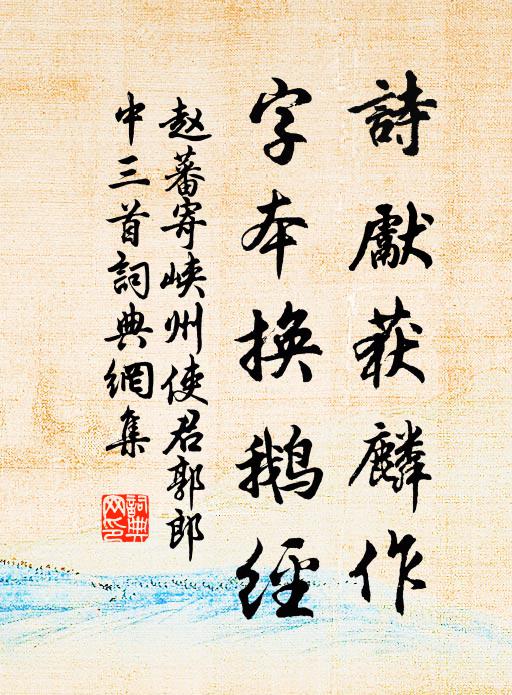 詩獻获麟作
字本換鹅經
赵蕃寄峡州使君郭郎
中三首詞典網集
詞典网印